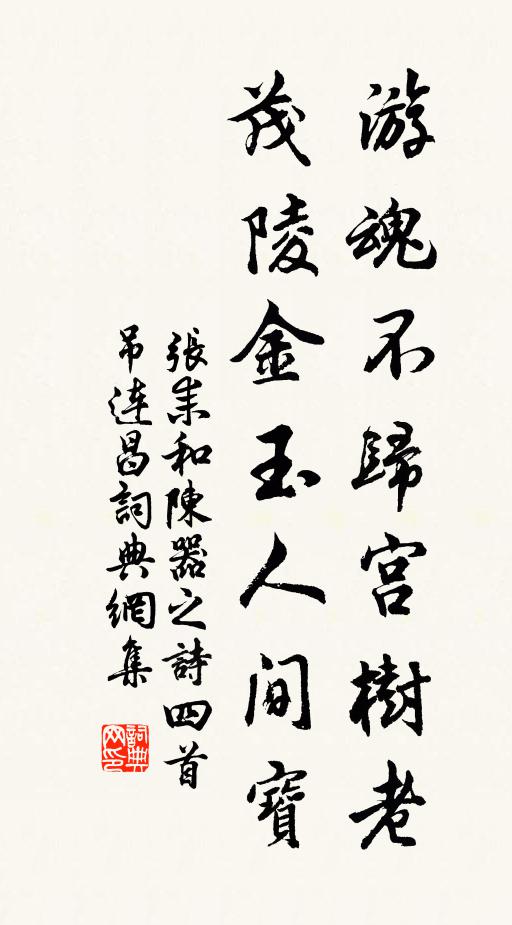 游魂不歸宮樹老
茂陵金玉人间寶
張耒和陳器之詩四首
吊连昌詞典網集
詞典网印